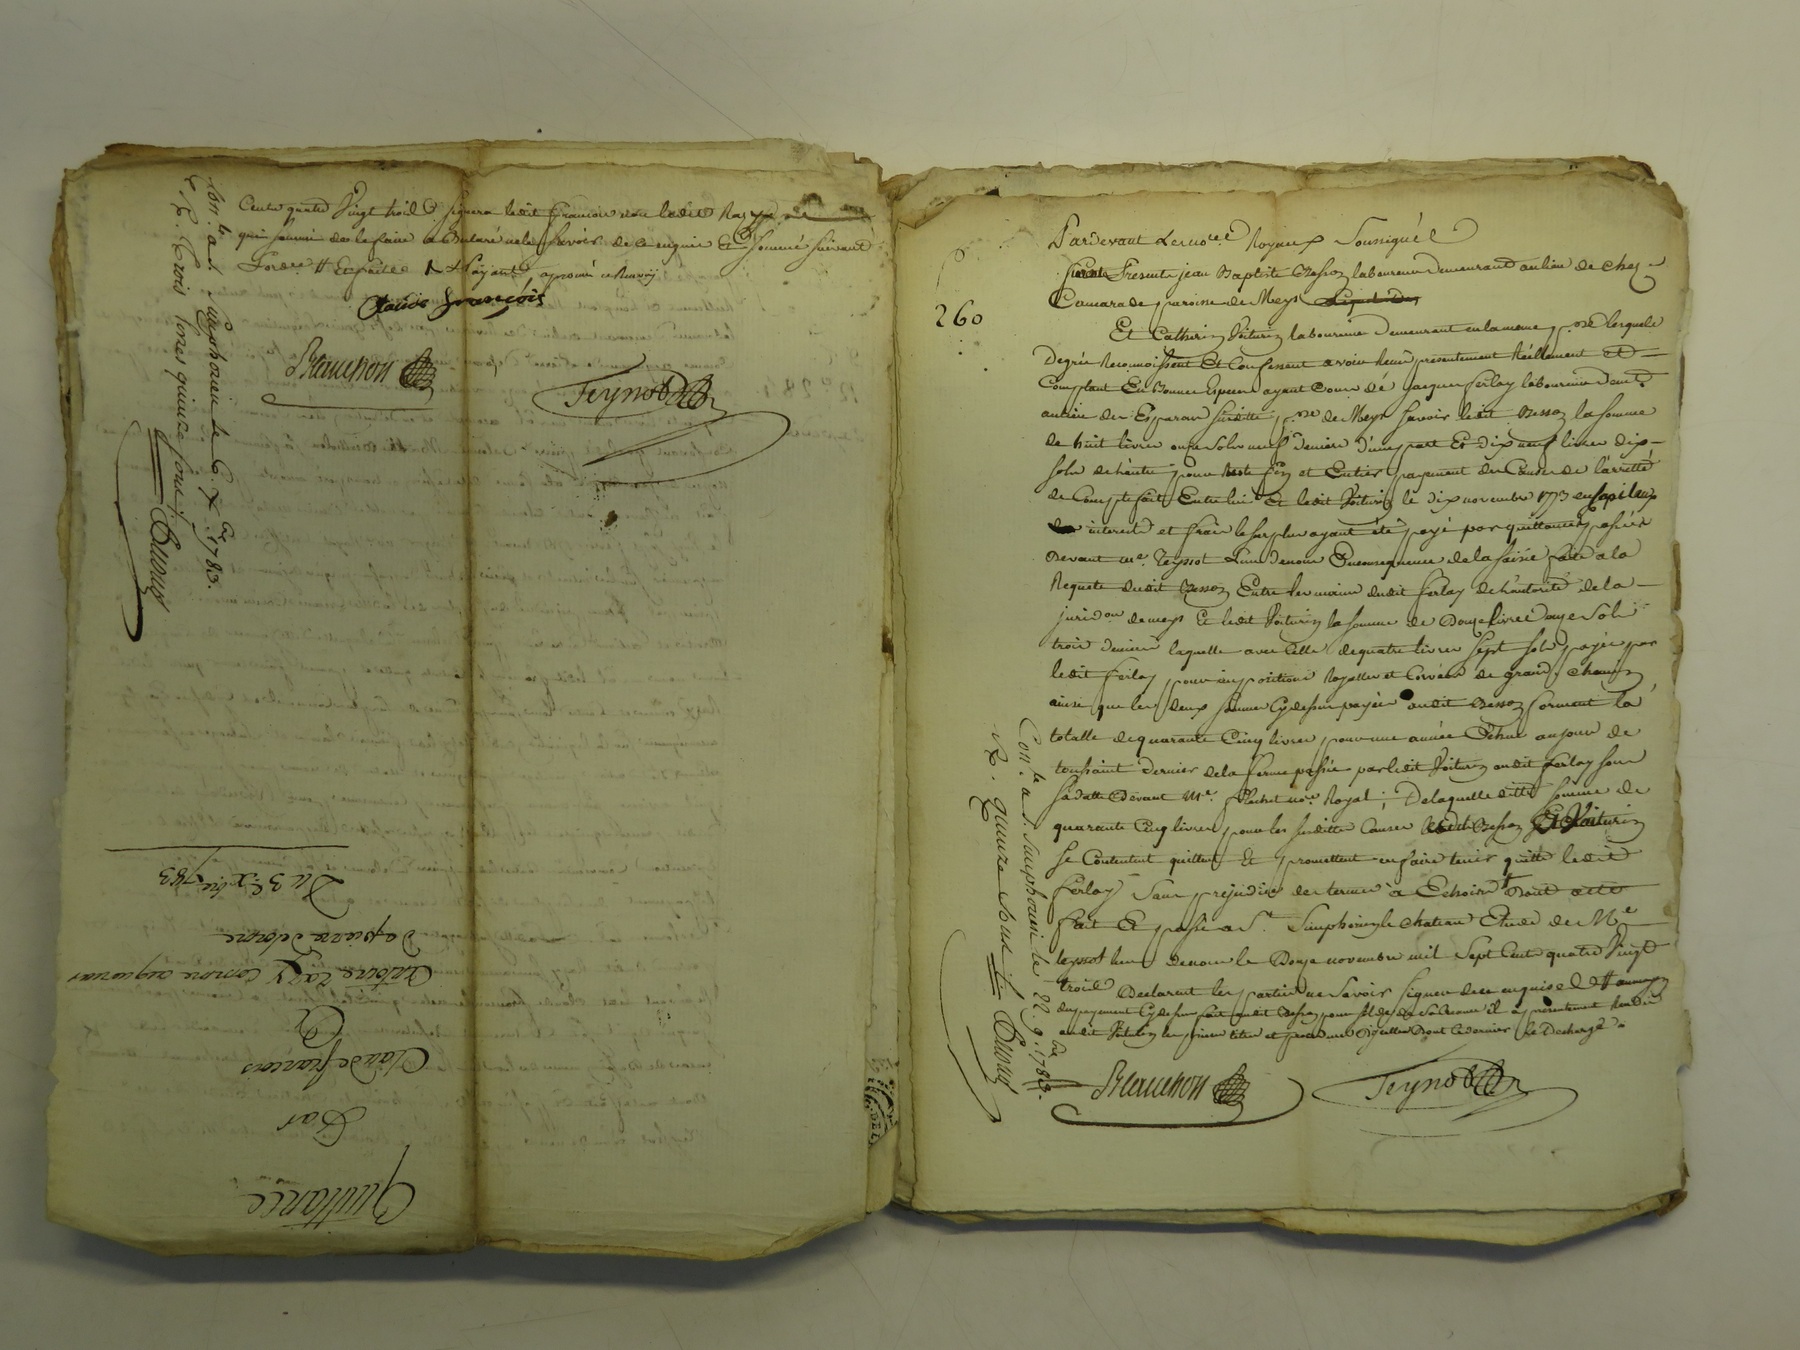 Cents quatre Vingt trois signera ledit francois non ledit
qui sommé de le faire a declaré ne le Savoir de ce enquis Et sommé suivant
approuvé ce Renvoy
Claude françois
Beauchon
Teynot
Con.le a S. Simphorien le 6. X.bre 1783.
R. trois livres quinze sous
Quittance
Par
Claude francois
De
Du 3e Xbre 1783
260
Pardevant Les no.res Royaux Soussignés
furent Presents jean Baptiste Besson laboureur demeurant au lieu de chez
Camarade paroisse de Meys
Et Catherin Voiturin laboureur demeurant en la meme p.sse lesquels
De gré Reconnoissent Et Confessent avoir Receu presentement Réellement et
Comptant En Bonnes Especes ayant Cours de jacques ferlay laboureur dem.t
au lieu de Esparan susditte p.sse de Meys Savoir ledit Besson la somme
de huit livres onze Sols neuf deniers d'une part Et dix neuf livres dix
sols de l'autre pour Reste fin et Entier payement des Causes de l'arretté
de Compte fait Entre lui Et ledit Voiturin le dix novembre 1773 en
interets et frais le surplus ayant été payé par quittances passées
Devant m.e Teyssot L'un de nous En consequence de la saisie faite a la
Requete dudit Besson Entre les mains dudit ferlay de l'autorité de la
jurid.on de meys Et ledit Voiturin la somme de Douze livres onze Sols
trois deniers laquelle avec Celle de quatre livres Sept sols payée par
ledit ferlay pour impositions Royalles et Corvées de grands chemins
ainsi que les deux sommes Cy dessus payées audit Besson forment la
totalle de quarante Cinq livres pour une année Echue au jour de
toussaint dernier de la ferme passée par ledit Voiturin audit ferlay sous
sa datte Devant M.e no.re Royal ; De laquelle ditte somme de
quarante Cinq livres pour les susdittes Causes Besson Et Voiturin
se Contentent quittent Et promettent en faire tenir quitte ledit
ferlay Sans prejudice des termes à Echoir Dont acte
fait Et passé a S.t Simphorien le chateau Etude de M.e
l'un de nous le Douze novembre mil Sept Cents quatre Vingt
trois Declarent les parties ne Savoir signer de ce enquises
du payement Cy dessus fait audit Besson pour de Sa Creance il a presentement Rendu
audit Voiturin les pieces titres et procedures Dont Ce dernier le Decharge
Beauchon
Teynot
Con.le a S. Simphorien le 22. 9.bre 1783.
R. quinze Sous